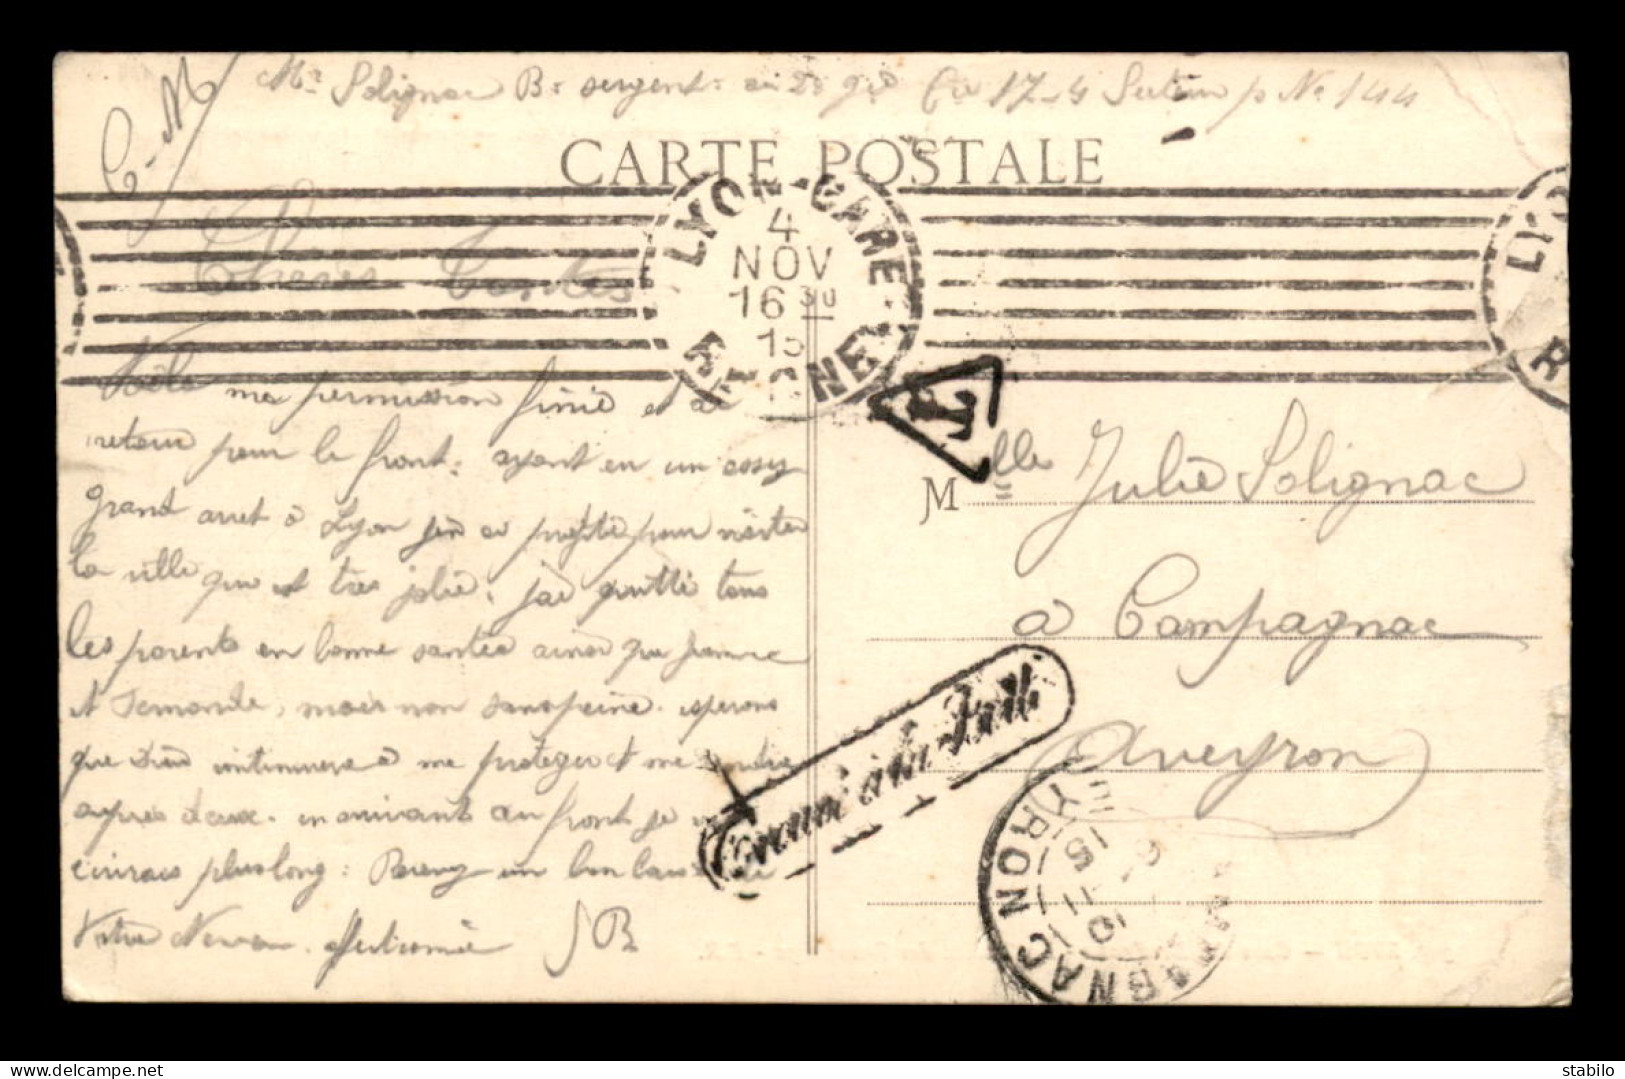 C-M
Mr Solignac B. sergent au 28 Cie 17-4 Secteur p No 144
CARTE POSTALE
LYON-GARE
4
NOV
16 30
15
RHONE
LYO
R
T
Chères Tantes
Voila ma permission finie et
retour pour le front. ayant eu un assez
grand arret à Lyon jen ai profité pour visiter
la ville qui est très jolie. jai quitté tous
les parents en bonne santée ainsi que Jeanne
et Fernande, mais non sans peine. esperons
que Dieu continuera à me protéger et me
aupres deux. en arrivant au front je
ecrirais plus long. Recevez un bon baiser de
Votre Neveu affectionné SB
Mlle Julie Solignac
à Campagnac
Aveyron
Trouvé à la Boîte
CAMPAGNAC
10
11
15
AVEYRON
stabilo
delcampe.net